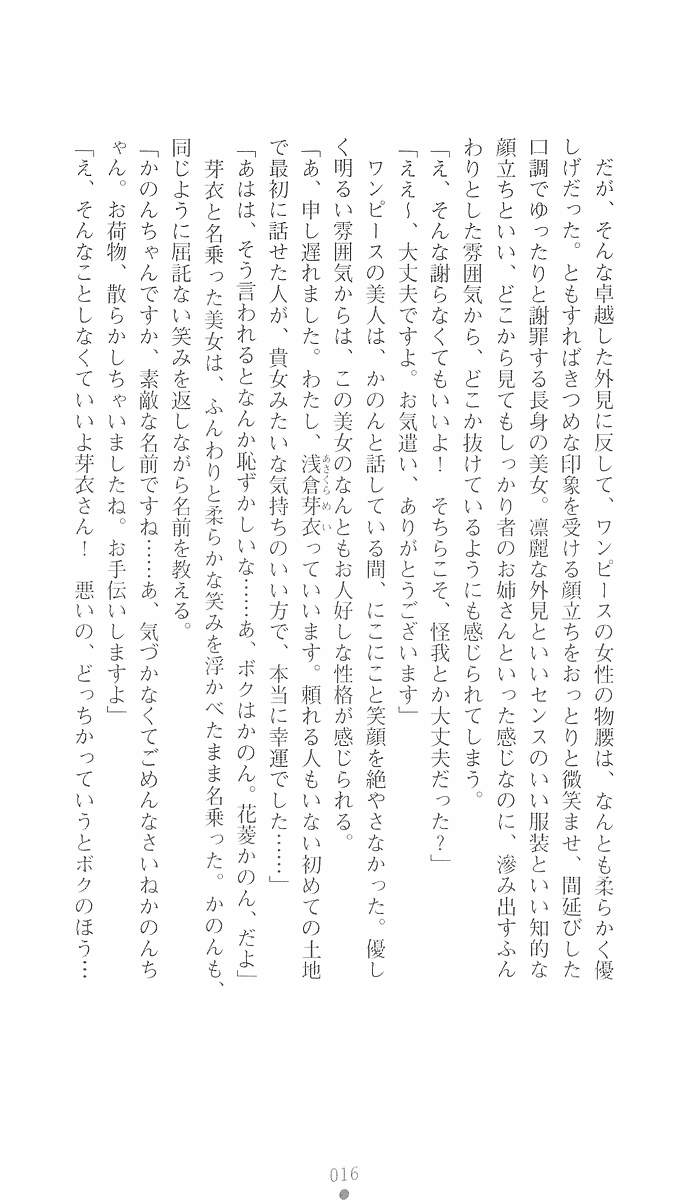 だが、そんな卓越した外見に反して、ワンピースの女性の物腰は、なんとも柔らかく優
しげだった。ともすればきつめな印象を受ける顔立ちをおっとりと微笑ませ、間延びした
口調でゆったりと謝罪する長身の美女。凛麗な外見といいセンスのいい服装といい知的な
顔立ちといい、どこから見てもしっかり者のお姉さんといった感じなのに、滲み出すふん
わりとした雰囲気から、どこか抜けているようにも感じられてしまう。
「え、そんな謝らなくてもいいよ!　そちらこそ、怪我とか大丈夫だった?」
「ええ〜、大丈夫ですよ。お気遣い、ありがとうございます」
ワンピースの美人は、かのんと話している間、にこにこと笑顔を絶やさなかった。優し
く明るい雰囲気からは、この美女のなんともお人好しな性格が感じられる。
「あ、申し遅れました。わたし、浅倉芽衣っていいます。頼れる人もいない初めての土地
あさくらめい
で最初に話せた人が、貴女みたいな気持ちのいい方で、本当に幸運でした……」
「あはは、そう言われるとなんか恥ずかしいな……あ、ボクはかのん。花菱かのん、だよ」
芽衣と名乗った美女は、ふんわりと柔らかな笑みを浮かべたまま名乗った。かのんも、
同じように屈託ない笑みを返しながら名前を教える。
「かのんちゃんですか、素敵な名前ですね……あ、気づかなくてごめんなさいねかのんち
ゃん。お荷物、散らかしちゃいましたね。お手伝いしますよ」
「え、そんなことしなくていいよ芽衣さん!　悪いの、どっちかっていうとボクのほう…
016